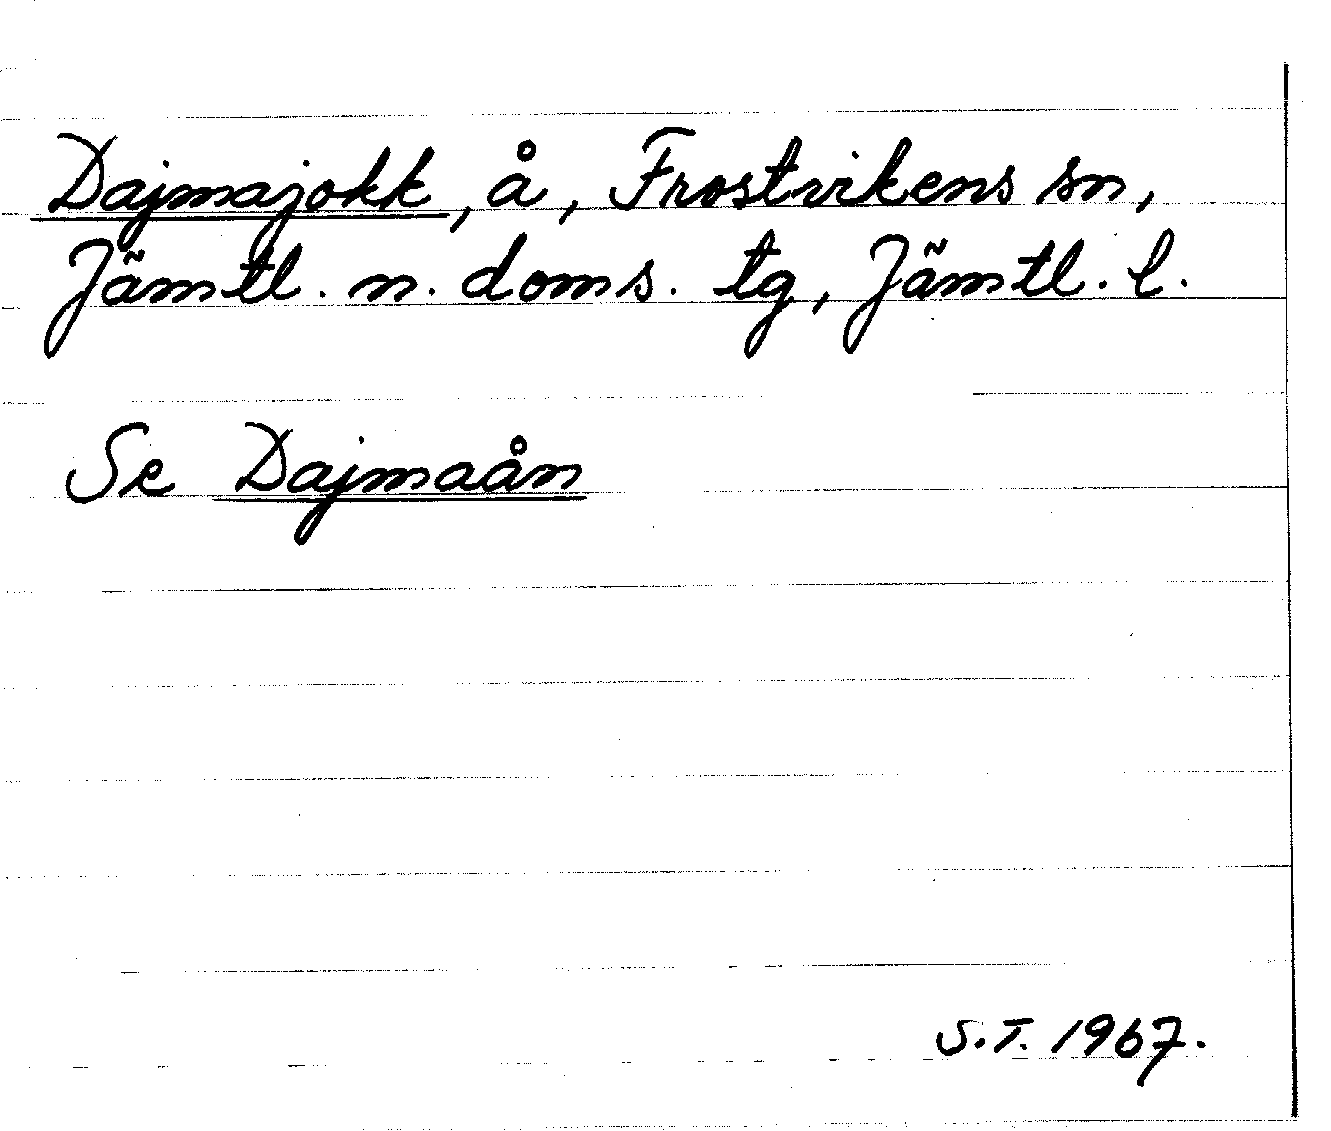 Dajmajokk, å, Frostvikens sn,
Jämtl. n. doms. tg, Jämtl. l.
Se Dajmaån
S.T. 1967.